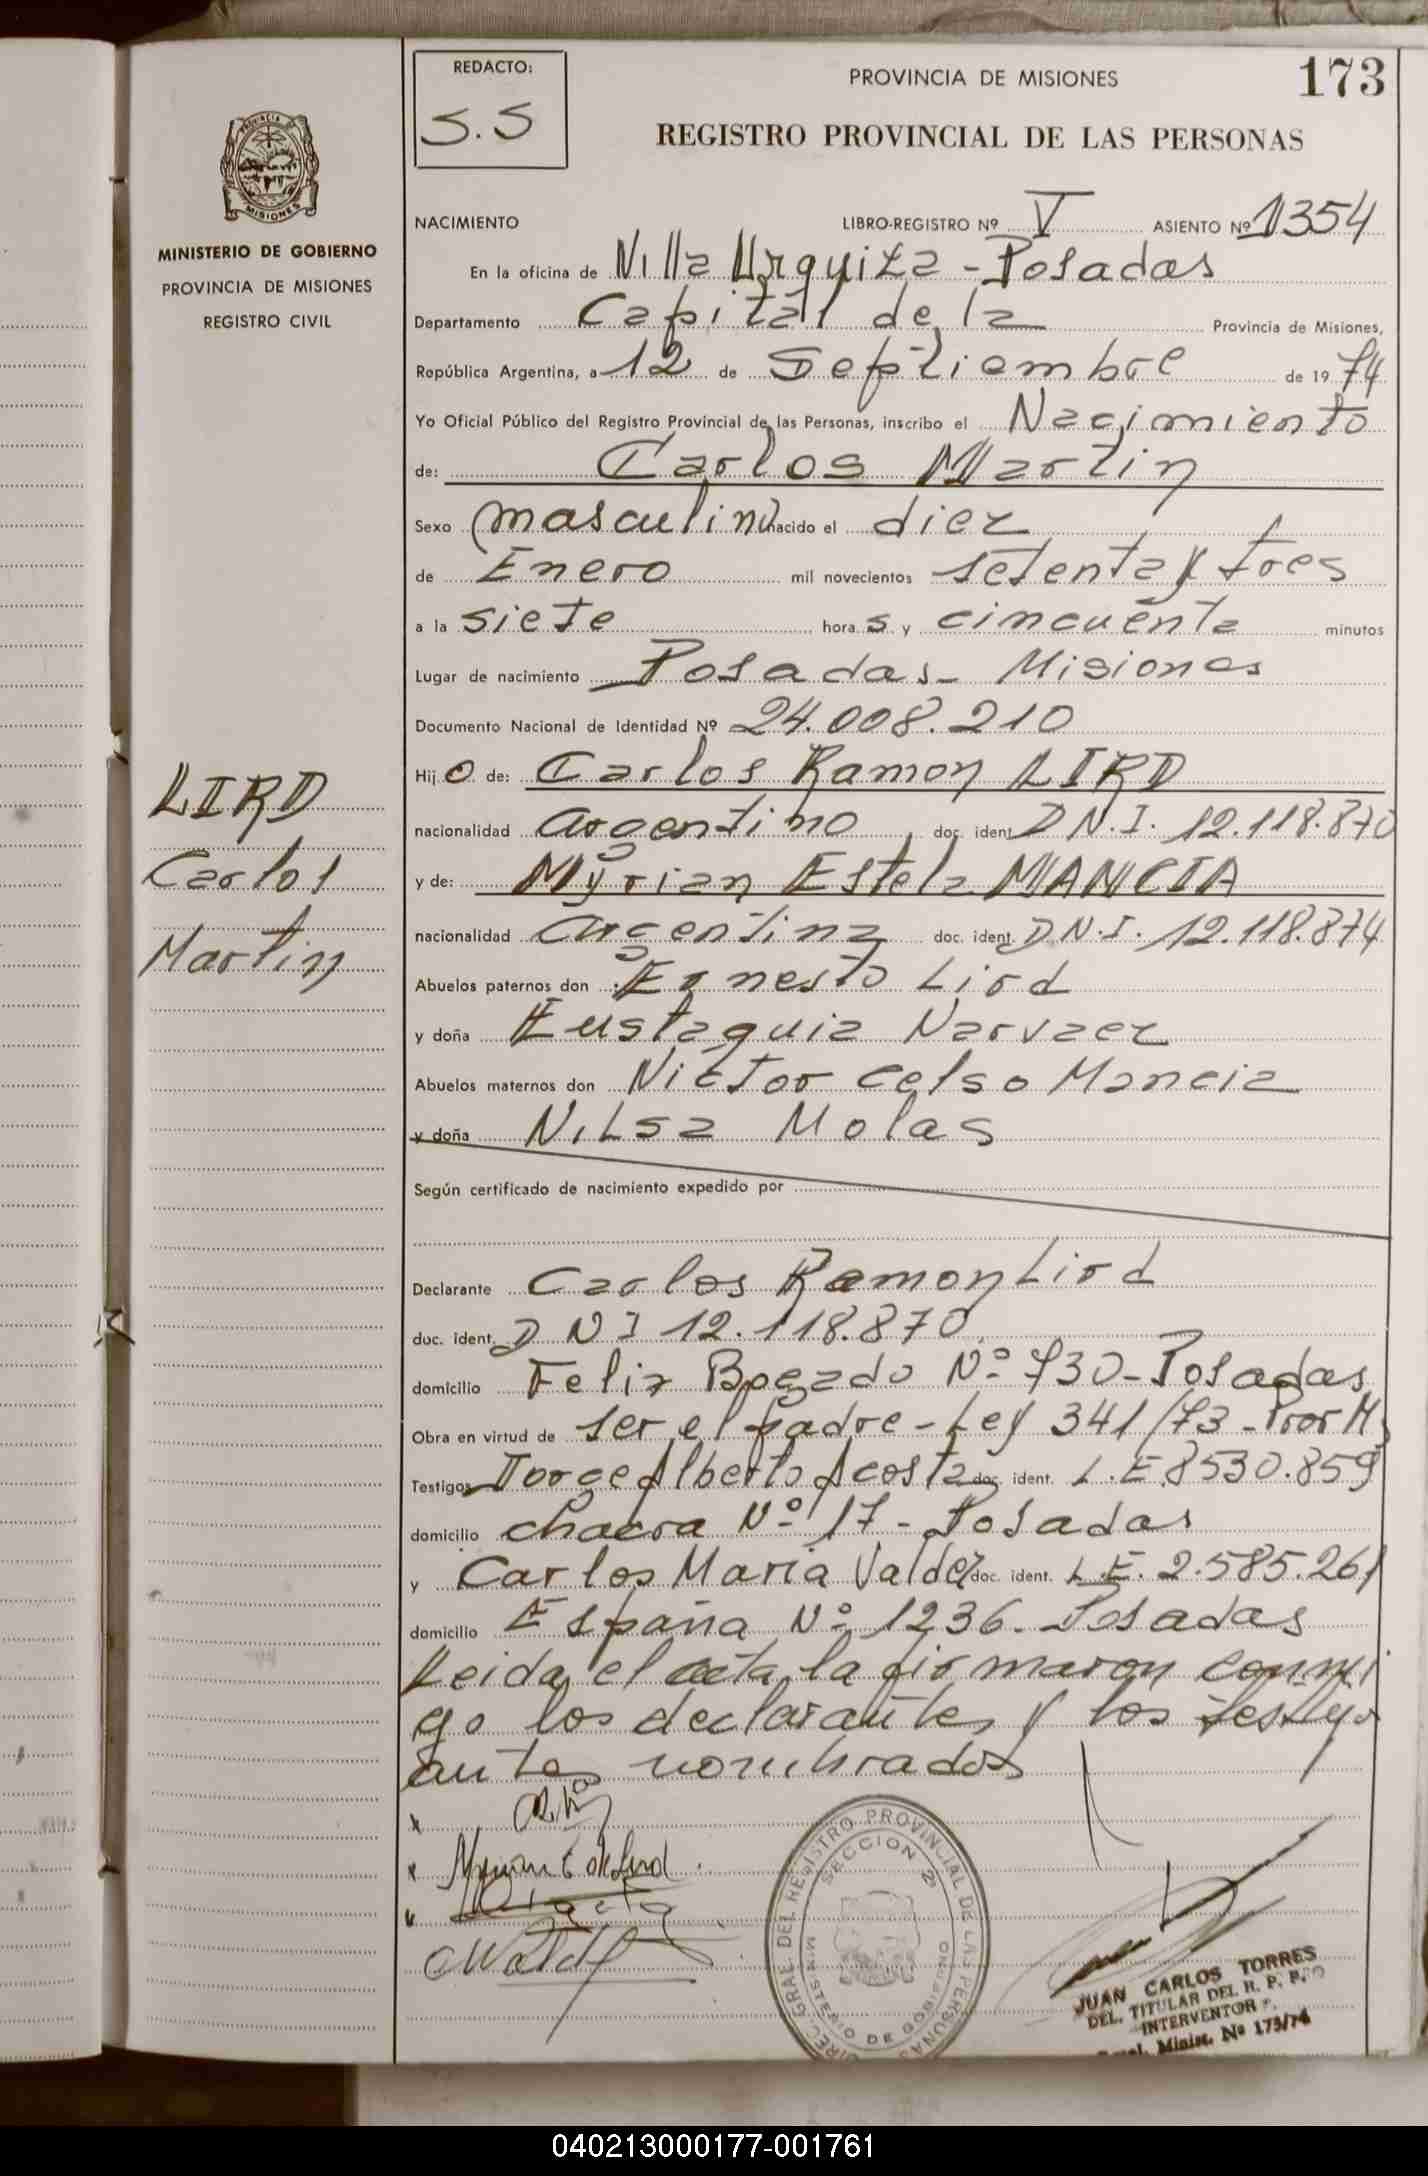 REDACTO:
S.S
PROVINCIA DE MISIONES
173
REGISTRO PROVINCIAL DE LAS PERSONAS
PROVINCIA DE
MISIONES
MINISTERIO DE GOBIERNO
PROVINCIA DE MISIONES
REGISTRO CIVIL
NACIMIENTO LIBRO-REGISTRO Nº V ASIENTO Nº 1354
En la oficina de Villa Urquiza - Posadas
Departamento Capital de la Provincia de Misiones,
República Argentina, a 12 de Septiembre de 1974
Yo Oficial Público del Registro Provincial de las Personas, inscribo el Nacimiento
de: Carlos Martin
Sexo masculino nacido el diez
de Enero mil novecientos setenta y tres
a la siete hora s y cincuenta minutos
Lugar de nacimiento Posadas - Misiones
Documento Nacional de Identidad Nº 24.008.210
Hij o de: Carlos Ramon LIRD
nacionalidad argentino doc. ident. D N.I. 12.118.870
y de: Myrian Estela MANCIA
nacionalidad argentina doc. ident. D N.I. 12.118.874
Abuelos paternos don Ernesto Lird
y doña Eustaquia Narvaez
Abuelos maternos don Victor Celso Mancia
y doña Nilsa Molas
LIRD
Carlos
Martin
Según certificado de nacimiento expedido por
Declarante Carlos Ramon Lird
doc. ident. D N I 12.118.870
domicilio Felix Bogado Nº 730 - Posadas
Obra en virtud de ser el padre - Ley 341/73 - Pror M.
Testigos Jorge Alberto Acosta doc. ident. L.E. 8530.859
domicilio chacra Nº 17 - Posadas
y Carlos Maria Valdez doc. ident. L.E. 2.585.261
domicilio España Nº 1236 - Posadas
Leida el acta la firmaron conmi
go los declarantes y los testigos
antes nombrados
DIREC. GRAL. DEL REGISTRO PROVINCIAL DE LAS PERSONAS
SECCION 2ª
MINISTERIO DE GOBIERNO
JUAN CARLOS TORRES
DEL. TITULAR DEL R. P. P.
INTERVENTOR
Minist. Nº 173/74
040213000177-001761